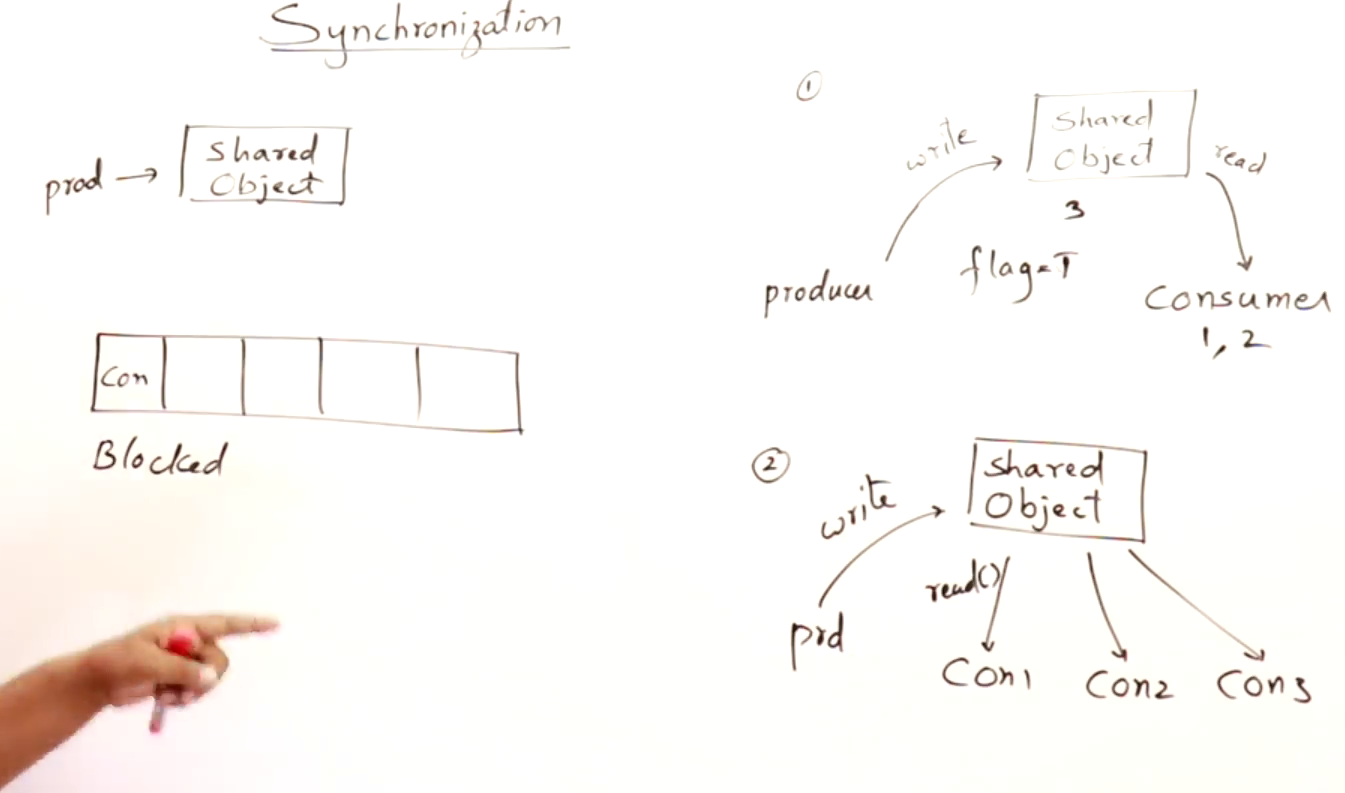 Synchronization
prod
Shared
Object
Con
Blocked
①
write
Shared
Object
read
3
flag=T
producer
Consumer
1, 2
②
write
Shared
Object
read()
prd
Con1
Con2
Con3